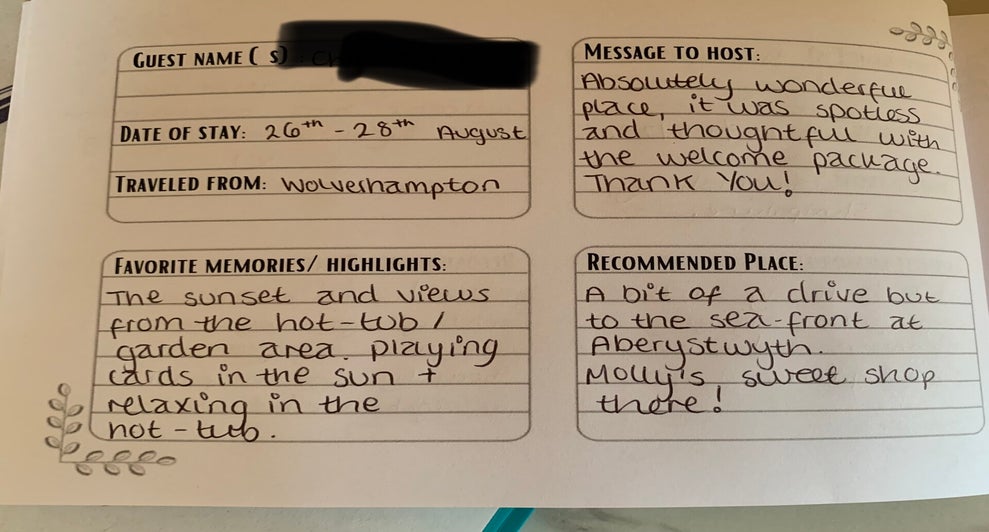 GUEST NAME ( S) : Ch
DATE OF STAY: 26th - 28th August
TRAVELED FROM: Wolverhampton
MESSAGE TO HOST:
Absolutely wonderful
place, it was spotless
and thoughtful with
the welcome package.
Thank You!
FAVORITE MEMORIES/ HIGHLIGHTS:
The sunset and views
from the hot-tub /
garden area. playing
cards in the sun +
relaxing in the
hot-tub.
RECOMMENDED PLACE:
A bit of a drive but
to the sea-front at
Aberystwyth.
Molly's sweet shop
there!